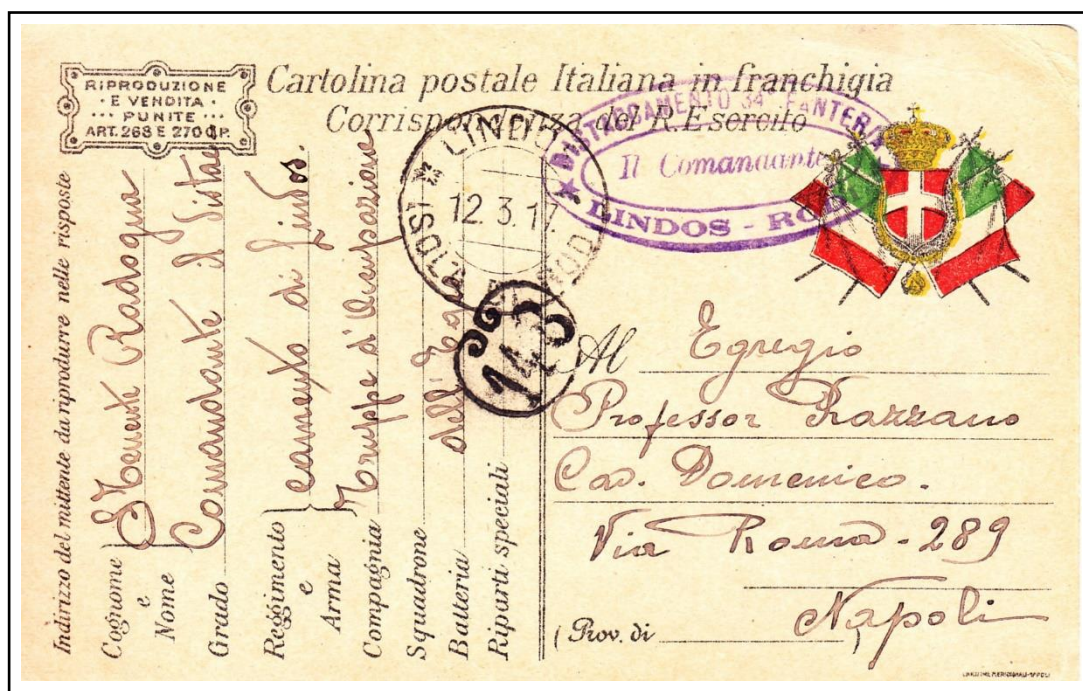 RIPRODUZIONE
· E VENDITA ·
··· PUNITE ···
ART. 268 E 270 C.P.
Cartolina postale Italiana in franchigia
Corrispondenza del R. Esercito
DISTACCAMENTO 34° FANTERIA
Il Comandante
★ LINDOS - ROD
LINDO
12.3.17
ISOLA
143
Al Egregio
Professor Razzano
Cav. Domenico.
Via Roma - 289
Napoli
(Prov. di )
Indirizzo del mittente da riprodurre nelle risposte
Cognome e Nome Tenente Radogna
Grado Comandante il Distac
Reggimento e Arma camento di Lindos.
Compagnia Truppe d'Occupazione
Squadrone
Batteria dell' Egeo
Riparti speciali